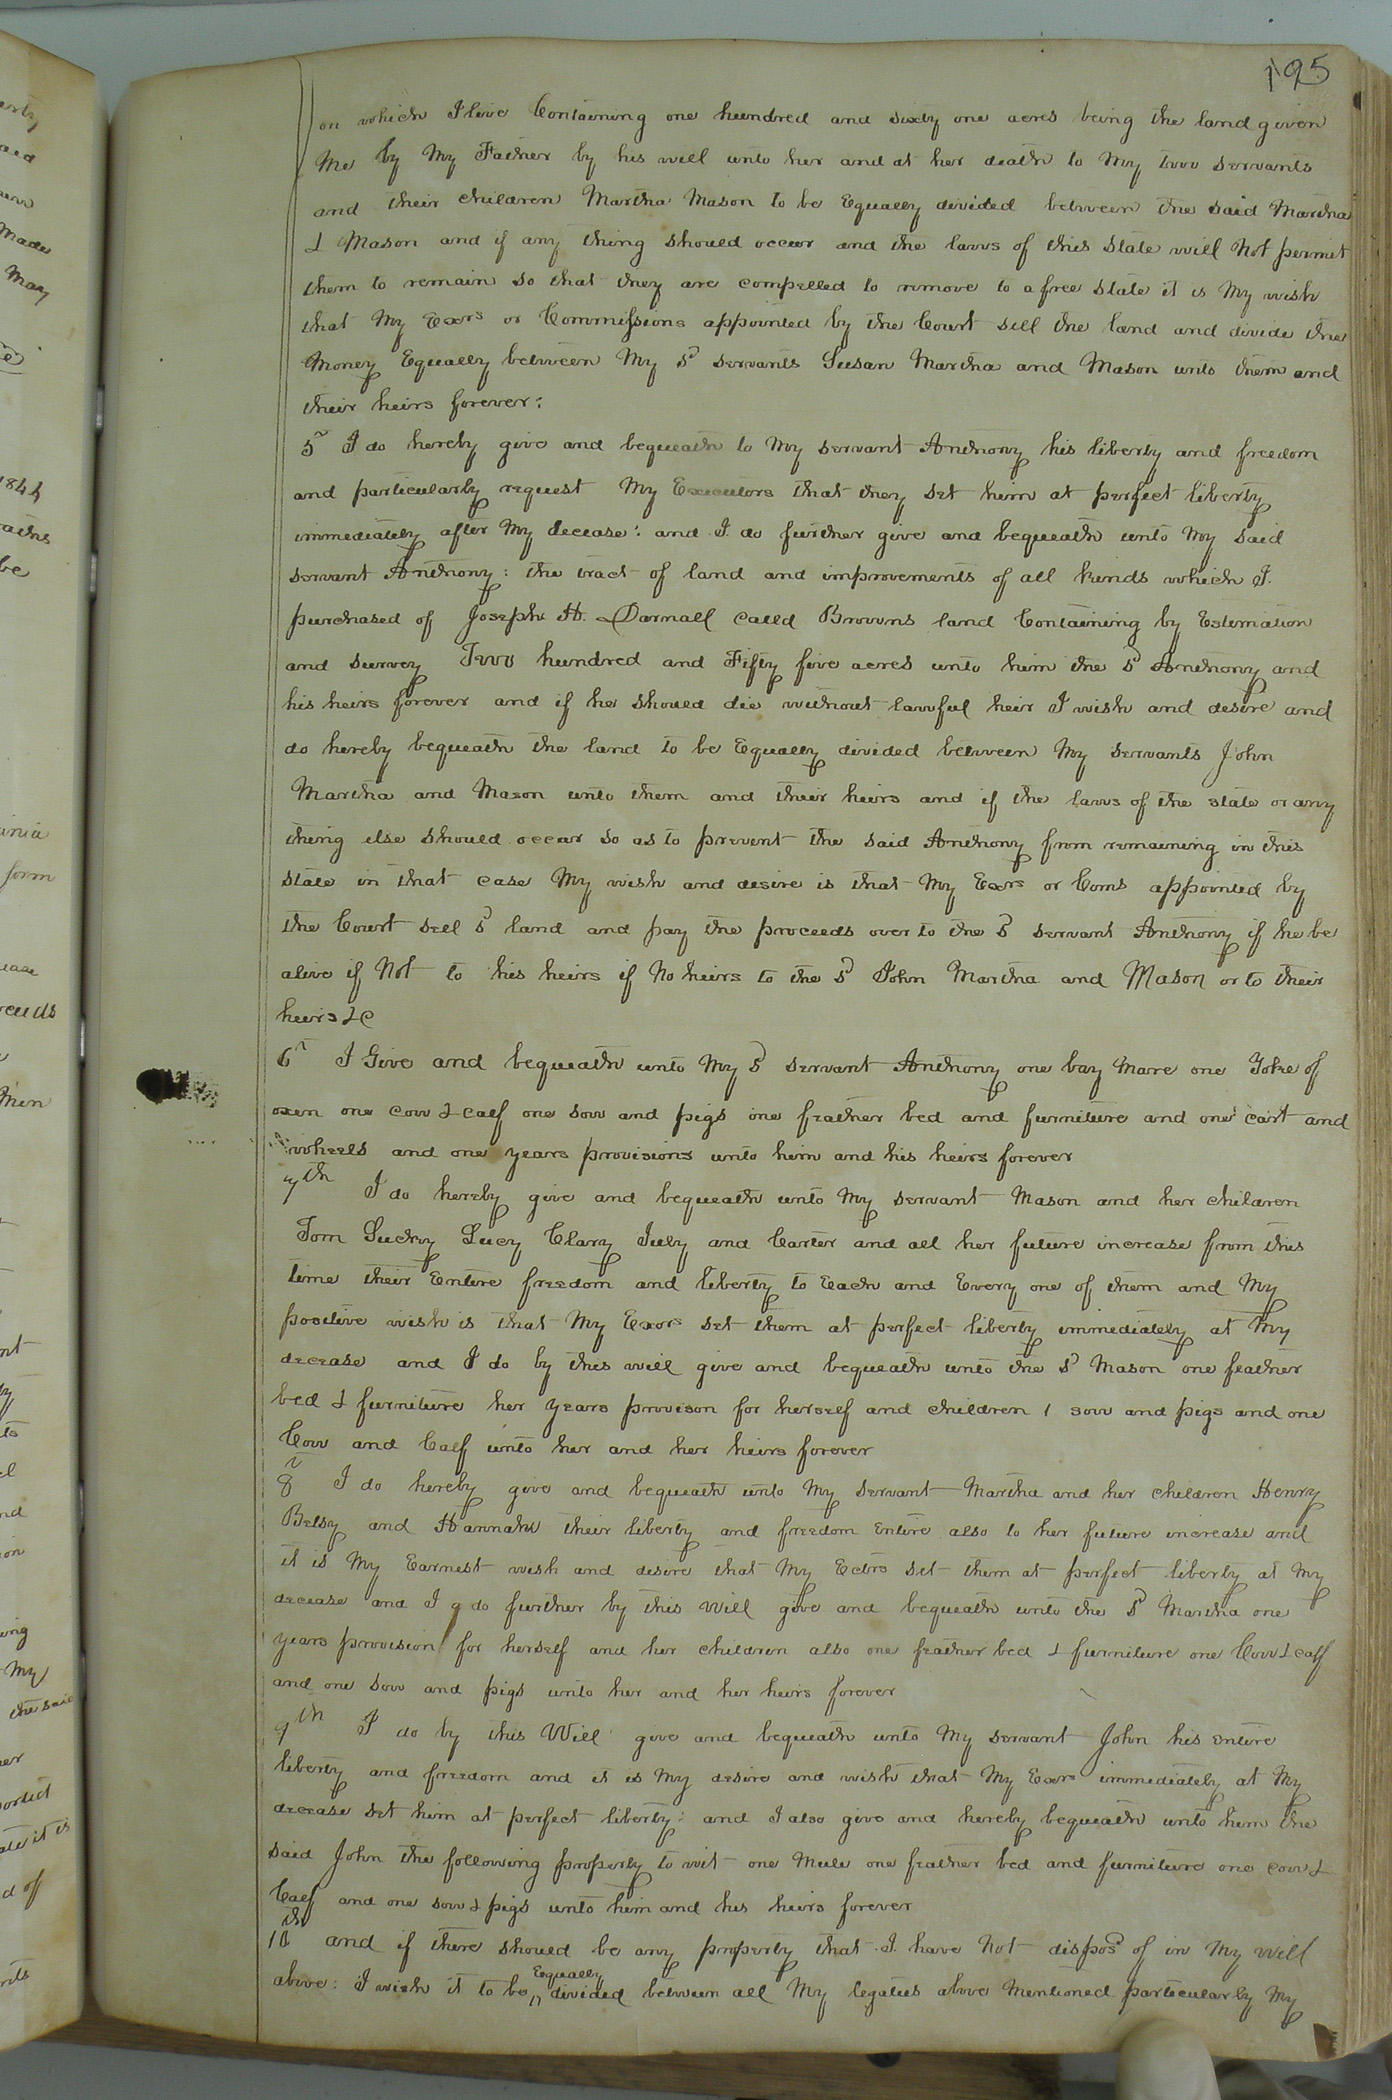 195
on which I live Containing one hundred and sixty one acres being the land given
Me by My Father by his will unto her and at her death to My two servants
and their children Martha Mason to be Equally divided between the said Martha
& Mason and if any thing should occur and the laws of this State will Not permit
them to remain so that they are compelled to remove to a free state it is My wish
that My Exors or Commissions appointed by the Court sell the land and divide the
Money Equally between My sd servants Susan Martha and Mason unto them and
their heirs forever:
5th I do hereby give and bequeath to My servant Anthony his liberty and freedom
and particularly request My Executors that they set him at perfect liberty
immediately after My decease: and I do further give and bequeath unto My said
servant Anthony: the tract of land and improvements of all kinds which I.
purchased of Joseph H. Darnall calld Browns land Containing by Estimation
and survey Two hundred and Fifty five acres unto him the sd Anthony and
his heirs forever and if he should die without lawful heir I wish and desire and
do hereby bequeath the land to be Equally divided between My servants John
Martha and Mason unto them and their heirs and if the laws of the state or any
thing else should occur so as to prevent the said Anthony from remaining in this
state in that case My wish and desire is that My Exors or Coms appointed by
the Court sell sd land and pay the proceeds over to the sd servant Anthony if he be
alive if Not to his heirs if No heirs to the sd John Martha and Mason or to their
heirs &c
6th I Give and bequeath unto My sd servant Anthony one bay Mare one Yoke of
oxen one cow & calf one sow and pigs one feather bed and furniture and one cart and
wheels and one years provisions unto him and his heirs forever
7th I do hereby give and bequeath unto My servant Mason and her children
Tom Suckey Lucy Clary July and Carter and all her future increase from this
time their Entire freedom and liberty to Each and Every one of them and My
positive wish is that My Exors set them at perfect liberty immediately at My
decease and I do by this will give and bequeath unto the sd Mason one feather
bed & furniture her years provison for herself and children 1 sow and pigs and one
Cow and Calf unto her and her heirs forever
8th I do hereby give and bequeath unto My servant Martha and her children Henry
Betsy and Hannah their liberty and freedom Entire also to her future increase and
it is My Earnest wish and desire that My Ectrs set them at perfect liberty at My
decease and I g do further by this Will give and bequeath unto the sd Martha one
years provision for herself and her children also one feather bed & furniture one Cow & calf
and one sow and pigs unto her and her heirs forever
9th I do by this Will give and bequeath unto My servant John his Entire
liberty and freedom and it is My desire and wish that My Exors immediately at My
decease set him at perfect liberty: and I also give and hereby bequeath unto him the
said John the following property to wit one Mule one feather bed and furniture one cow &
Calf and one sow & pigs unto him and his heirs forever
10th and if there should be any property that I have Not disposd of in My will
above: I wish it to be Equally divided between all My legatees above Mentioned particularly My